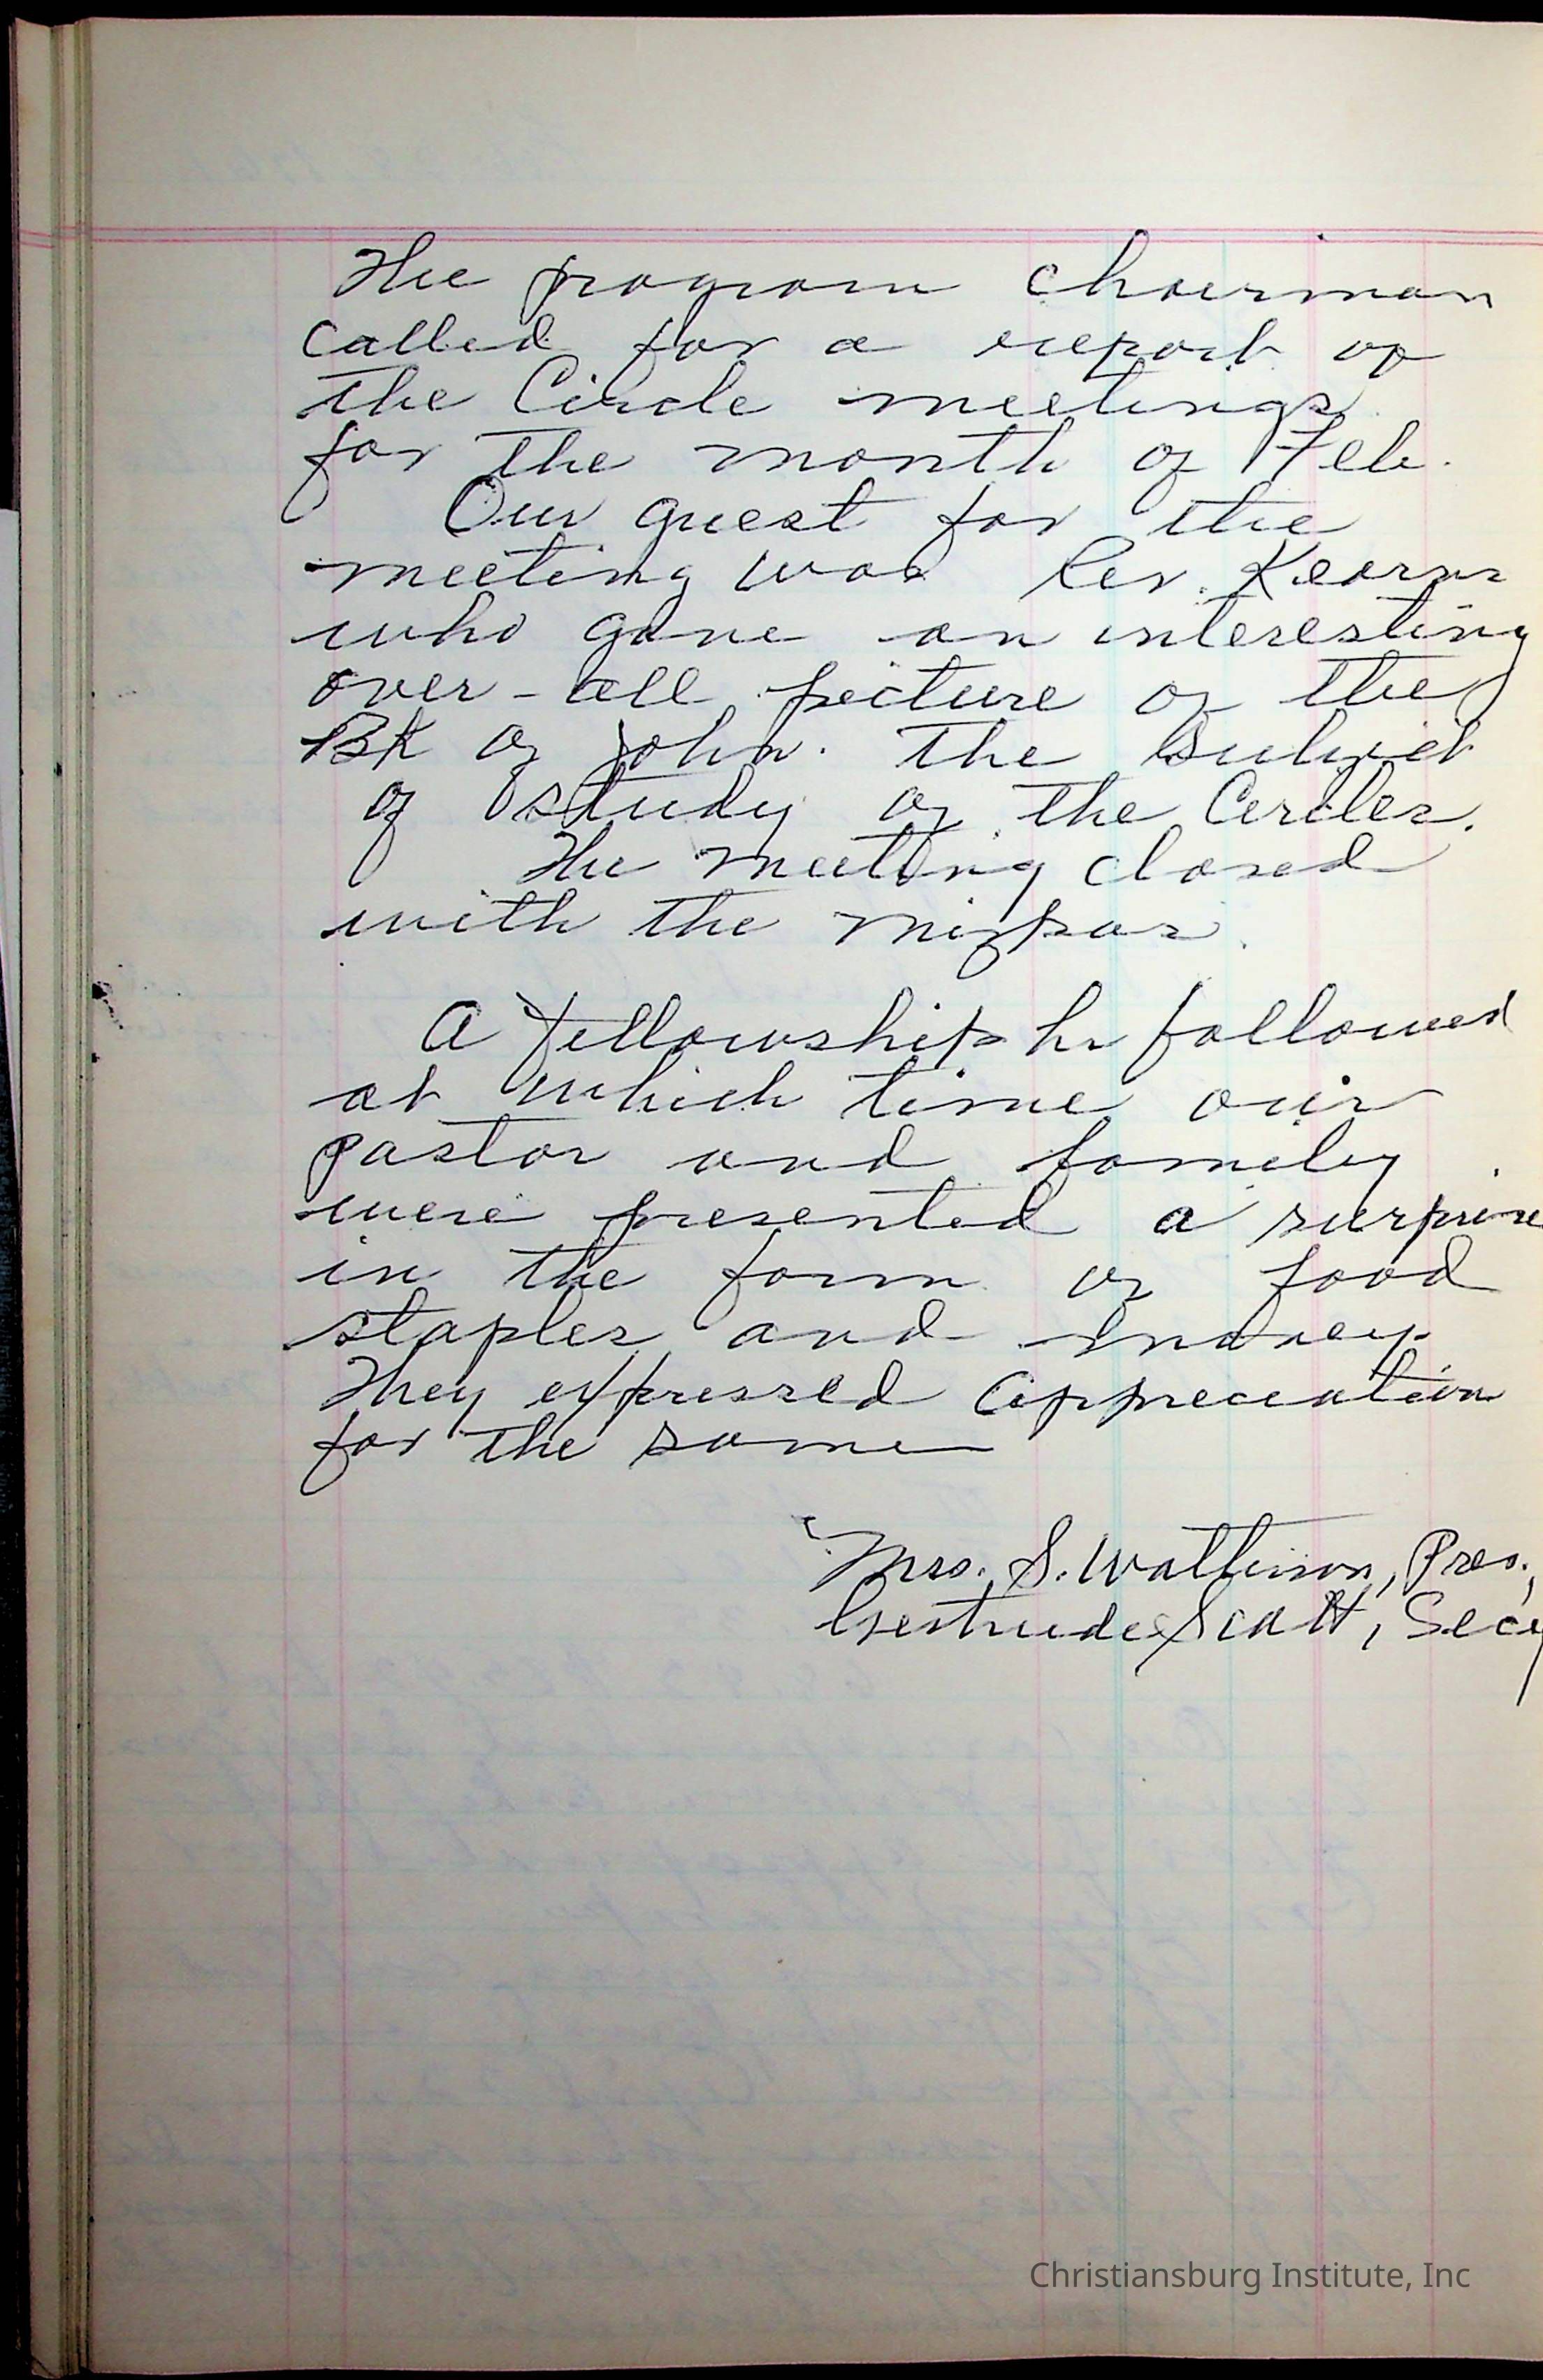 The program chairman
called for a report of
the Circle meetings
for the month of Feb.
Our guest for the
meeting was Rev. Kearns
who gave an interesting
over-all picture of the
BK of John. The Subject
of study of the Circles.
The meeting closed
with the Mizpar.
A fellowship hr followed
at which time our
pastor and family
were presented a surprise
in the form of food
staples and money.
They expressed appreciation
for the same
Mrs. S. Watterson, Pres.,
Gertrude Scott, Secy
Christiansburg Institute, Inc